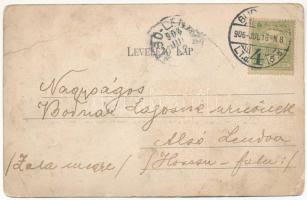 LEVELEZŐ-LAP
906 JUL 16
4
Nagyságos
Bodnár Lajosné urnőnek
Alsó Lendva
/Zala megye/ /Hosszu-falu/